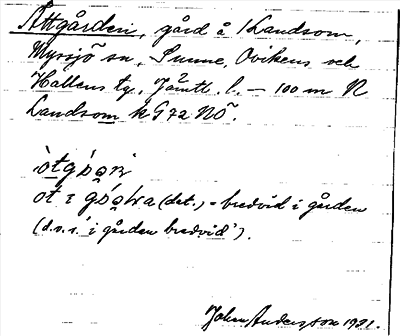 Åttgården, gård å Landsom,
Myssjö sn, Sunne, Ovikens och
Hallens tg, Jämtl. l. – 100 m N
Landsom k G 72 NÖ.
(dat.) = bredvid i gården
(d.v.s. 'i gården bredvid').
John Andersson 1921.